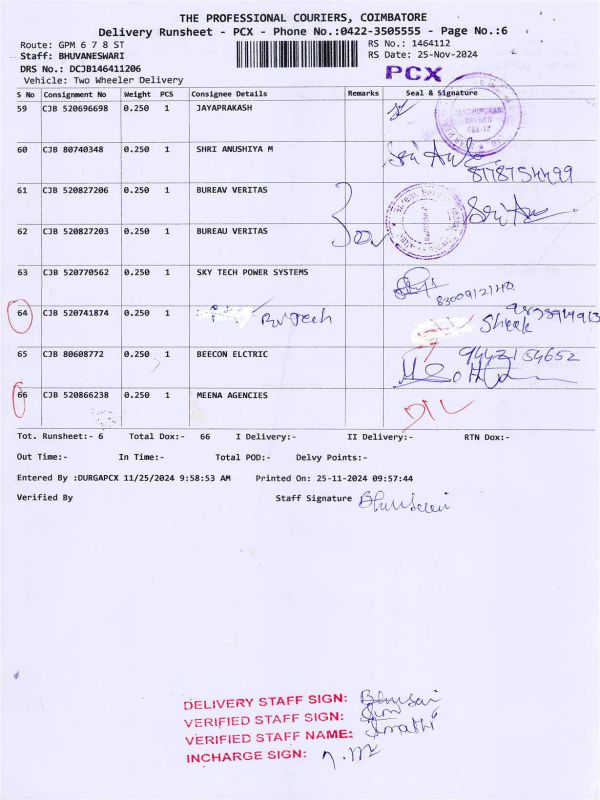 THE PROFESSIONAL COURIERS, COIMBATORE
Delivery Runsheet - PCX - Phone No.:0422-3505555 - Page No.:6
Route: GPM 6 7 8 ST RS No.: 1464112
Staff: BHUVANESWARI RS Date: 25-Nov-2024
DRS No.: DCJB146411206
Vehicle: Two Wheeler Delivery
PCX
S No Consignment No Weight PCS Consignee Details Remarks Seal & Signature
59 CJB 520696698 0.250 1 JAYAPRAKASH
60 CJB 80740348 0.250 1 SHRI ANUSHIYA M
61 CJB 520827206 0.250 1 BUREAV VERITAS
62 CJB 520827203 0.250 1 BUREAU VERITAS
63 CJB 520770562 0.250 1 SKY TECH POWER SYSTEMS
64 CJB 520741874 0.250 1
65 CJB 80608772 0.250 1 BEECON ELCTRIC
9442154652
66 CJB 520866238 0.250 1 MEENA AGENCIES
Tot. Runsheet:- 6 Total Dox:- 66 I Delivery:- II Delivery:- RTN Dox:-
Out Time:- In Time:- Total POD:- Delvy Points:-
Entered By :DURGAPCX 11/25/2024 9:58:53 AM Printed On: 25-11-2024 09:57:44
Verified By Staff Signature
DELIVERY STAFF SIGN:
VERIFIED STAFF SIGN:
VERIFIED STAFF NAME:
INCHARGE SIGN: